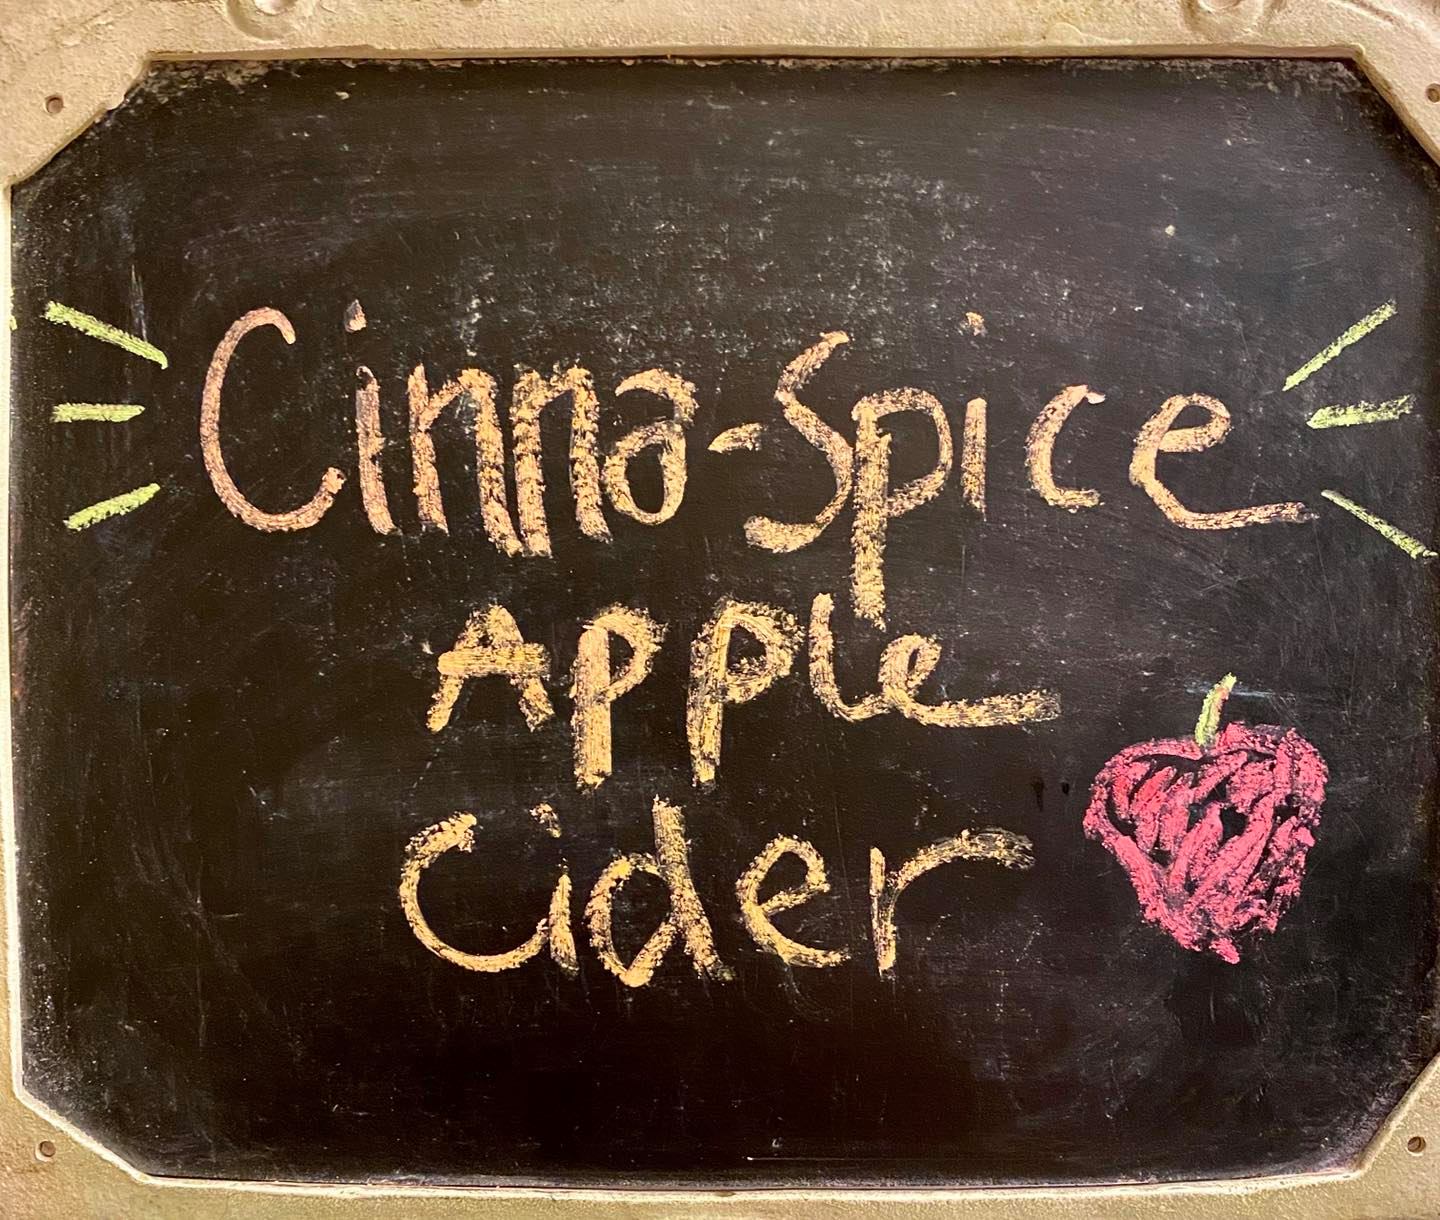 Cinna-Spice
Apple
Cider